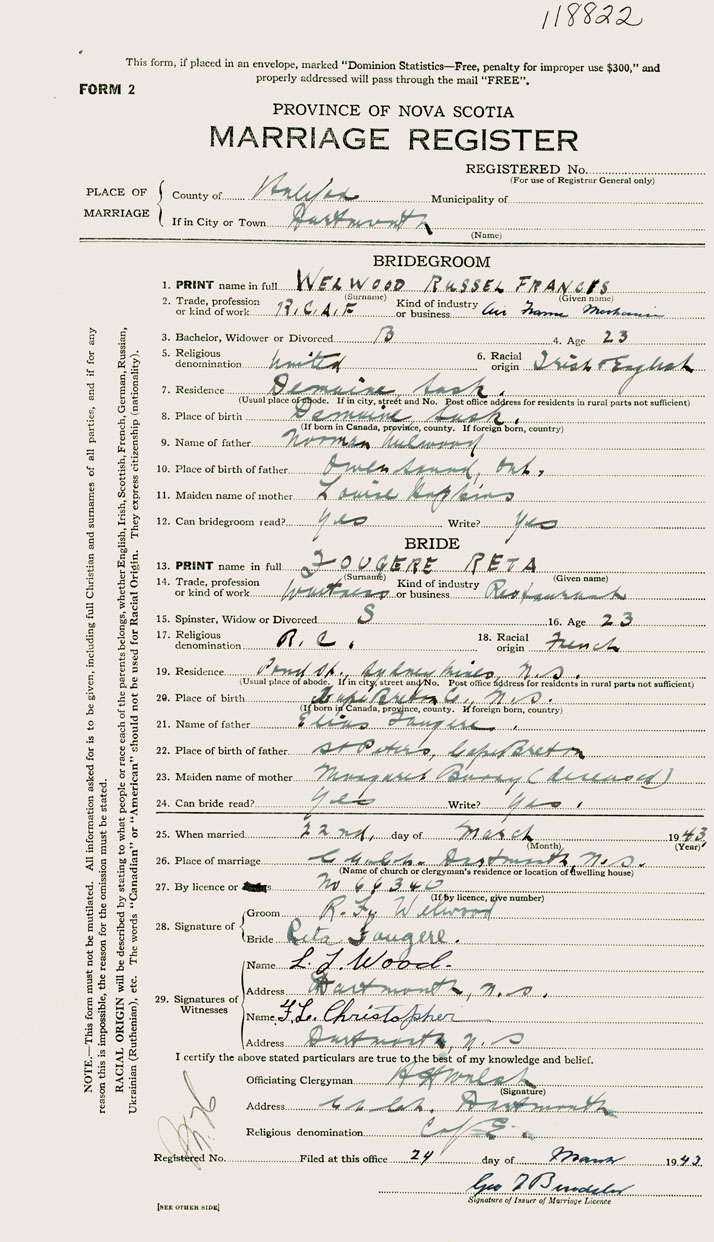 118822
This form, if placed in an envelope, marked "Dominion Statistics—Free, penalty for improper use $300," and
properly addressed will pass through the mail "FREE".
FORM 2
PROVINCE OF NOVA SCOTIA
MARRIAGE REGISTER
REGISTERED No.
(For use of Registrar General only)
PLACE OF MARRIAGE
County of Halifax Municipality of
If in City or Town Dartmouth
(Name)
BRIDEGROOM
1. PRINT name in full WELWOOD RUSSEL FRANCIS
(Surname) (Given name)
2. Trade, profession or kind of work R.C.A.F Kind of industry or business Air Frame Mechanic
3. Bachelor, Widower or Divorced B 4. Age 23
5. Religious denomination United 6. Racial origin Irish & English
7. Residence Demaine Sask.
(Usual place of abode. If in city, street and No. Post office address for residents in rural parts not sufficient)
8. Place of birth Demaine Sask.
(If born in Canada, province, county. If foreign born, country)
9. Name of father Norman Welwood
10. Place of birth of father Owen Sound, Ont.
11. Maiden name of mother Louise Hopkins
12. Can bridegroom read? yes Write? yes
BRIDE
13. PRINT name in full FOUGERE RETA
(Surname) (Given name)
14. Trade, profession or kind of work Waitress Kind of industry or business Restaurant
15. Spinster, Widow or Divorced S 16. Age 23
17. Religious denomination R.C. 18. Racial origin French
19. Residence Pond St., Sydney Mines, N.S.
(Usual place of abode. If in city, street and No. Post office address for residents in rural parts not sufficient)
20. Place of birth Cape Breton Co., N.S.
(If born in Canada, province, county. If foreign born, country)
21. Name of father Elias Fougere.
22. Place of birth of father St Peters, Cape Breton
23. Maiden name of mother Margaret (deceased)
24. Can bride read? yes Write? yes.
25. When married 22nd, day of March 1943
(Month) (Year)
26. Place of marriage Dartmouth, N.S.
(Name of church or clergyman's residence or location of dwelling house)
27. By licence or No 66340
(If by licence, give number)
28. Signature of
Groom R. F. Welwood
Bride Reta Fougere.
29. Signatures of Witnesses
Name L. J. Wood.
Address Dartmouth, N.S.
Name F.L. Christopher
Address Dartmouth, N.S
I certify the above stated particulars are true to the best of my knowledge and belief.
Officiating Clergyman Walsh
(Signature)
Address Dartmouth
Religious denomination C of E.
Registered No. Filed at this office 24 day of March 1943
Geo
Signature of Issuer of Marriage Licence
[SEE OTHER SIDE]
NOTE.—This form must not be mutilated. All information asked for is to be given, including full Christian and surnames of all parties, and if for any
reason this is impossible, the reason for the omission must be stated.
RACIAL ORIGIN will be described by stating to what people or race each of the parents belongs, whether English, Irish, Scottish, French, German, Russian,
Ukrainian (Ruthenian), etc. The words "Canadian" or "American" should not be used for Racial Origin. They express citizenship (nationality).